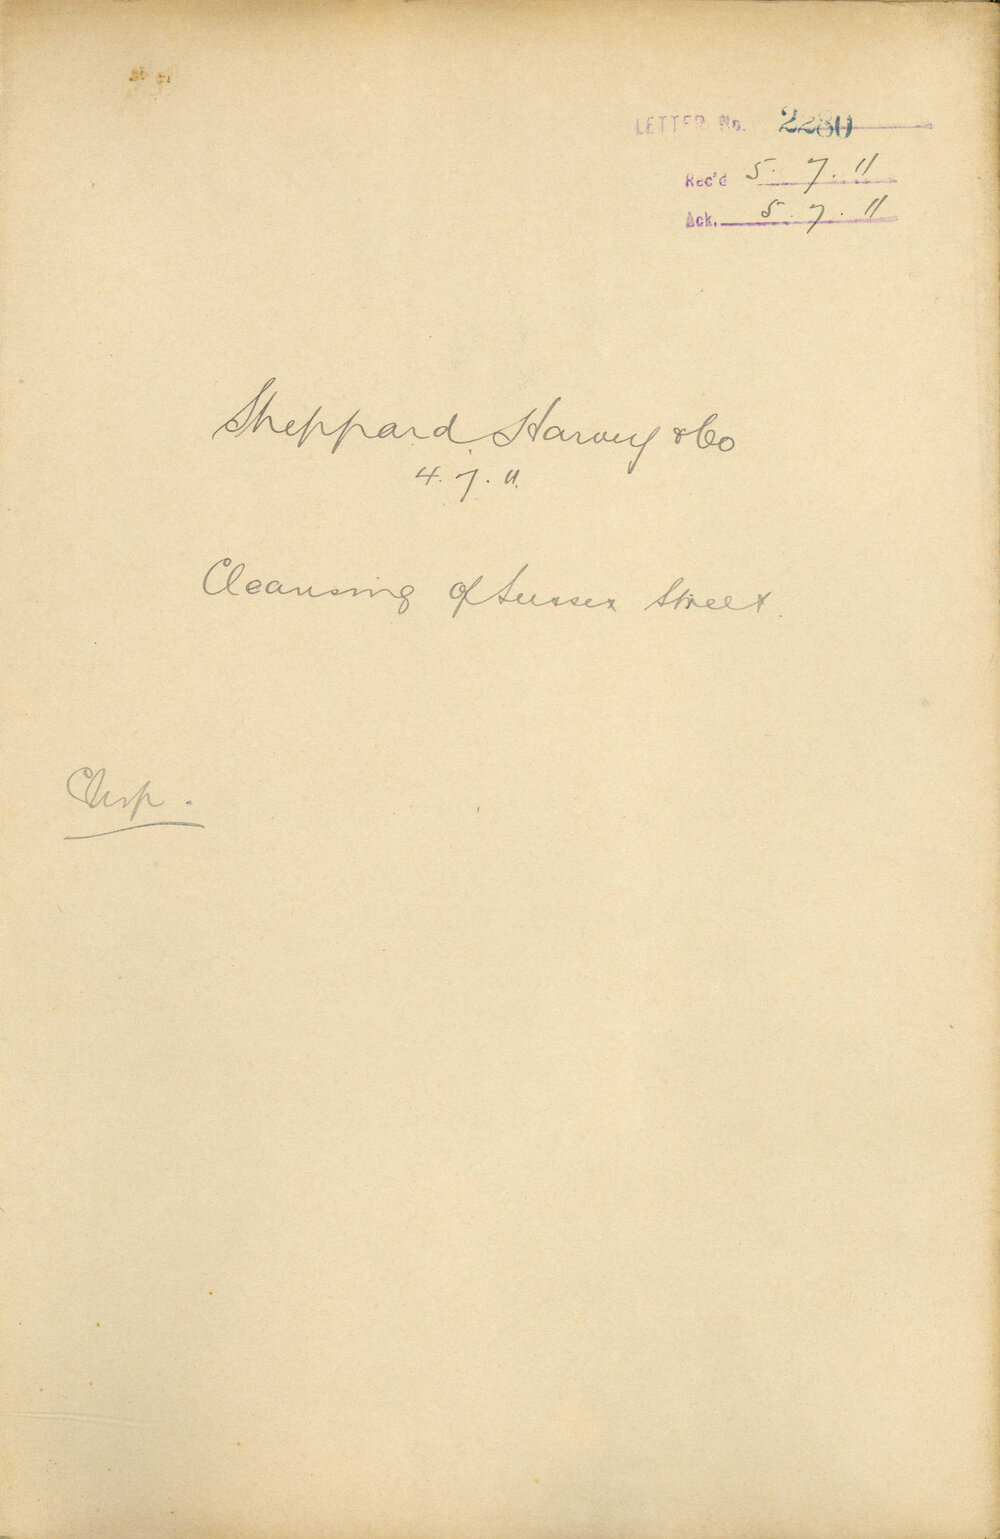 LETTER No. 2280
Rec'd 5. 7. 11
Ack. 5. 7. 11
Sheppard Harvey & Co
4. 7. 11.
Cleansing of Sussex Street.